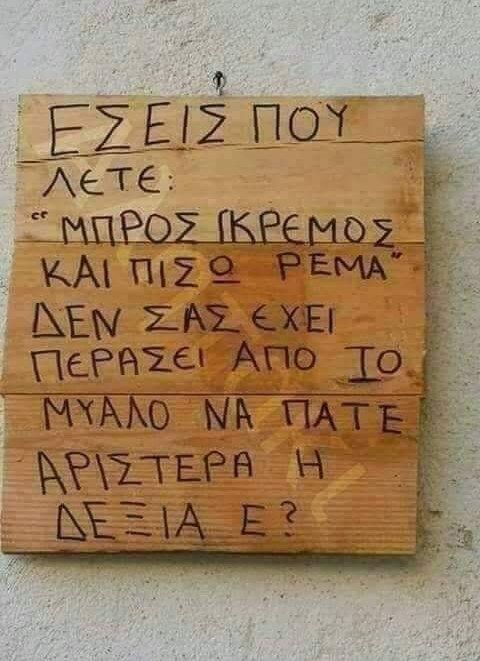 ΕΣΕΙΣ ΠΟΥ
ΛΕΤΕ:
"ΜΠΡΟΣ ΓΚΡΕΜΟΣ
ΚΑΙ ΠΙΣΩ ΡΕΜΑ"
ΔΕΝ ΣΑΣ ΕΧΕΙ
ΠΕΡΑΣΕΙ ΑΠΟ ΤΟ
ΜΥΑΛΟ ΝΑ ΠΑΤΕ
ΑΡΙΣΤΕΡΑ Η
ΔΕΞΙΑ Ε?